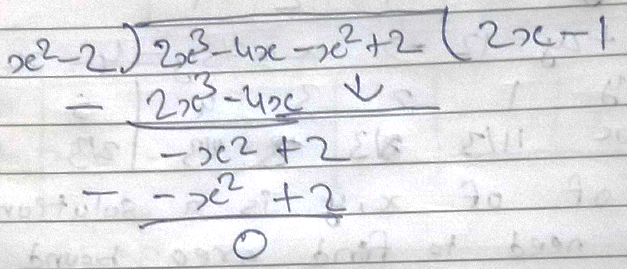 x²-2) 2x³-4x-x²+2 ( 2x-1
- 2x³-4x ↓
-x²+2
- -x²+2
0